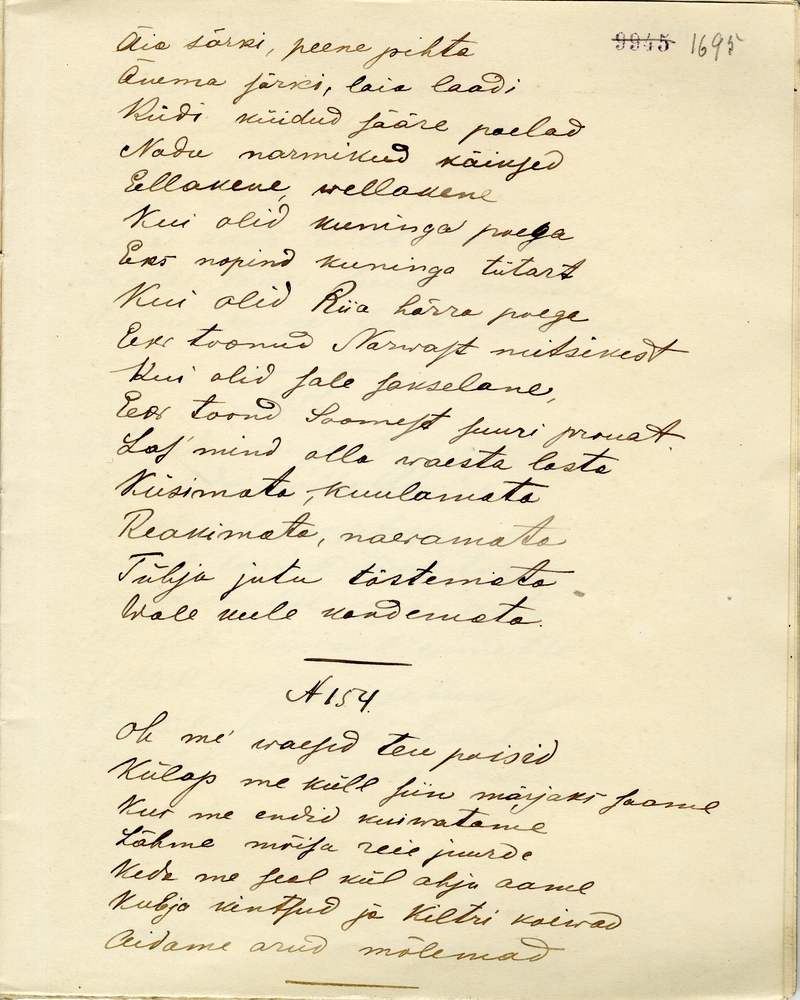 9945 1695
Äia särki, peene pihta
Änema särki, laia laadi
Küdi küidud sääre paelad
Nadu narmikud käiksed
Eellakene, wellakene
Kui olid kuninga poega
Eks nopind kuninga tütart
Kui olid Riia härra poega
Eks toonud Narwast neitsikest
Kui olid sale sakselane,
Eks toond Soomest suuri prouat.
Las' mind olla waesta lasta
Küsimata, kuulamata
Reakimata, naeramata
Tühja jutu tõstemata
Wale keele kandemata.
N 154.
Oh me' waesed teu poisid
Külap me küll siin märjaks saame
Kus me endid kuiwatame
Lähme mõisa reie juurde
Keda me seal kül ahju aame
Kubja kintsud ja Kiltri koiwad
Aidame arud mõlemad